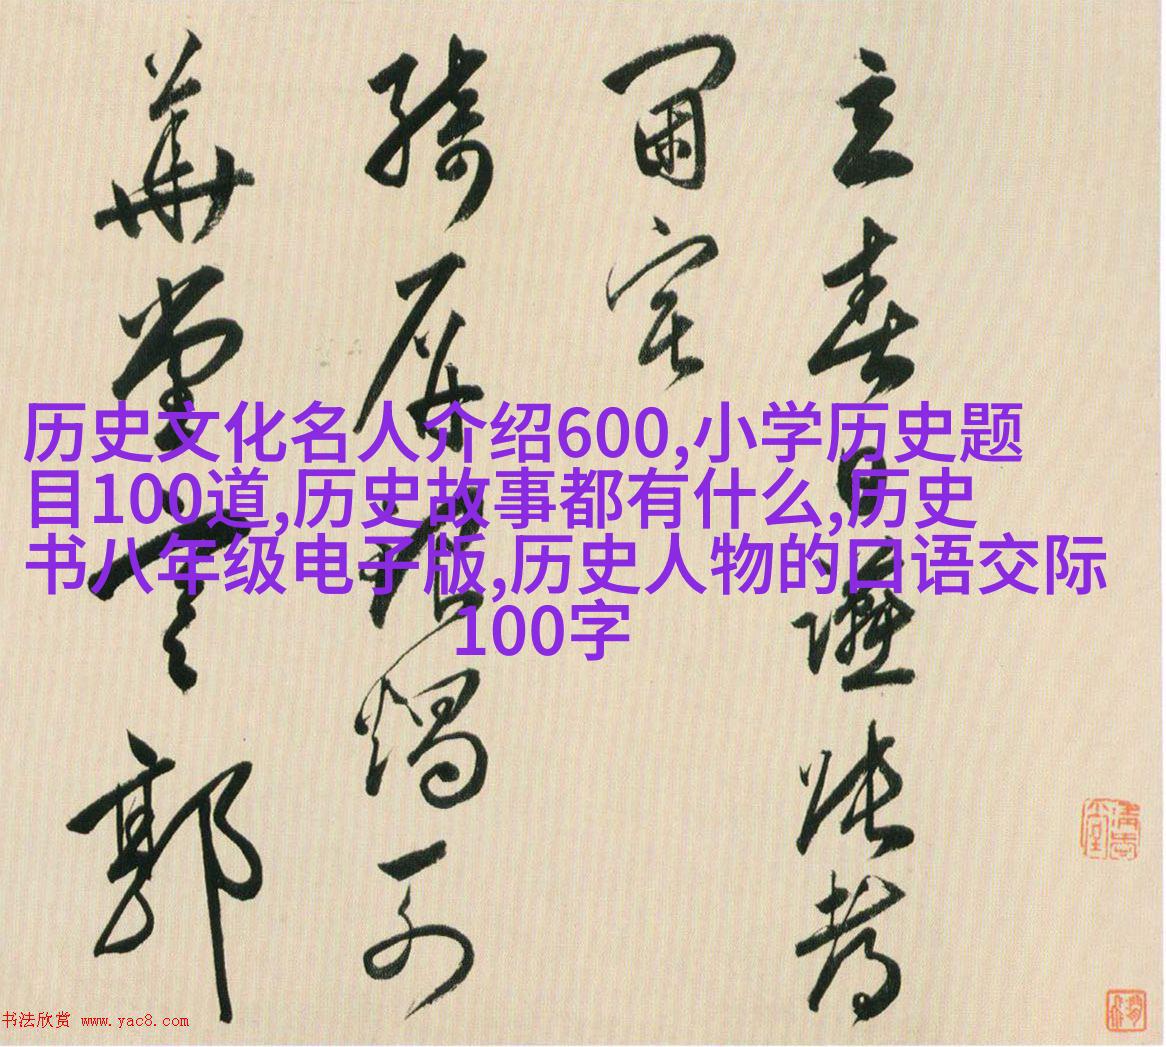 历史文化名人介绍600,小学历史题
目100道,历史故事都有什么,历史
书八年级电子版,历史人物的口语交际
100字
立春日讌張考
宅
綺燭
華堂郭
书法欣赏 www.yac8.com